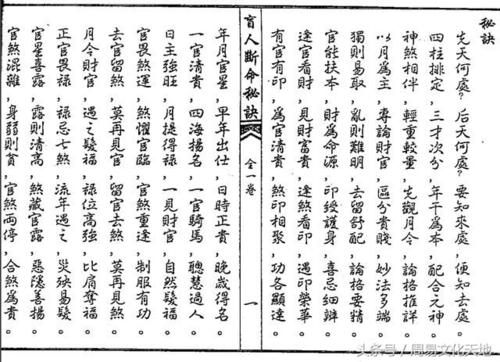 秘訣
先天何處?后天何處?要知來處，便知去處。
四柱排定，三才次分，年干為本，配合元神。
神煞相伴，輕重較量，先觀月令，論格推詳。
以月為主，專論財官，區分貴賤，妙法多端。
獨則易取，亂則難明，去留舒配，論格要精。
官能扶本，財為命源，印綬護身，喜忌細辨。
逢官看財，見財富貴，逢煞看印，遇印榮華。
有官有印，為官清貴，煞印相聚，功各顯達。
盲人斷命秘訣 全一卷 一
年月官星，早年出仕，日時正貴，晚歲得名。
一官清貴，四海揚名，一官騎馬，聰慧過人。
日主強旺，月提得祿，一見財官，自然發福。
官畏煞運，煞懼官臨，官煞重逢，制服有功。
去官留煞，莫再見官，留官去煞，莫再見煞。
月令財官，遇之發福，祿位高強，比肩奪福。
正官畏祿，祿忌七煞，流年遇之，災殃易發。
官星喜露，露則清高，煞藏官露，惡隱善揚。
官煞混雜，身弱則貧，官煞兩停，合煞為貴。
头条号/周易文化天地